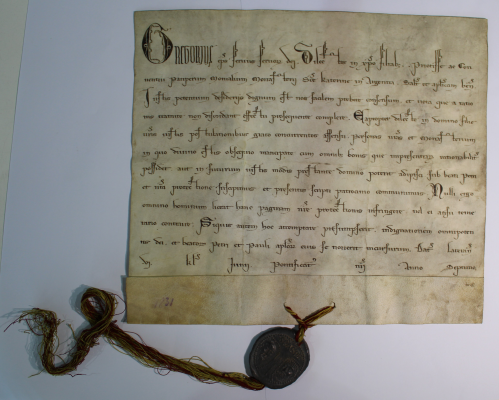 GREGORIUS epc servus servoꝝ dei Dilectis in xpo filiab Priorisse ac Con
ventui pauperum Monialium Monasterii Sce Katerine in Salt et aplicam ben
Iustis petentium desideriis dignum est nos facilem prebere consensum et vota que a ratio
nis tramite non discordant effectu prosequente complere Eapropter dilecte in domino filie
vris iustis postulationibus grato concurrentes assensu personas vras et monasterium
in quo divino estis obsequio mancipate cum omnibus bonis que impresentiarum rationabiliter
possidet aut in futurum iustis modis prestante domino poterit adipisci sub beati Petri
et nra protectione suscipimus et presentis scripti patrocinio communimus Nulli ergo
omnino hominum liceat hanc paginam nre protectionis infringere vel ei ausu teme
rario contraire Siquis autem hoc attemptare presumpserit indignationem omnipoten
tis dei et beatorum Petri et Pauli aploꝝ eius se noverit incursurum Dat Lateran
vj kls Junii Pontificatus nri Anno Septimo